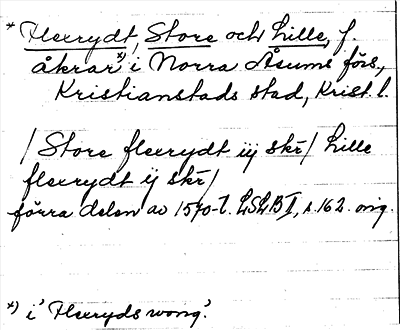 * Flexrydt, Store och Lille, f.
åkrar *) i Norra Åsums förs.,
Kristianstads stad, Krist. l.
/Store flexrydt iij skr/ Lille
flexrydt ij skr/
förra delen av 1570-t. LSLB I, s. 162. orig.
*) i 'Flexryds wong'.